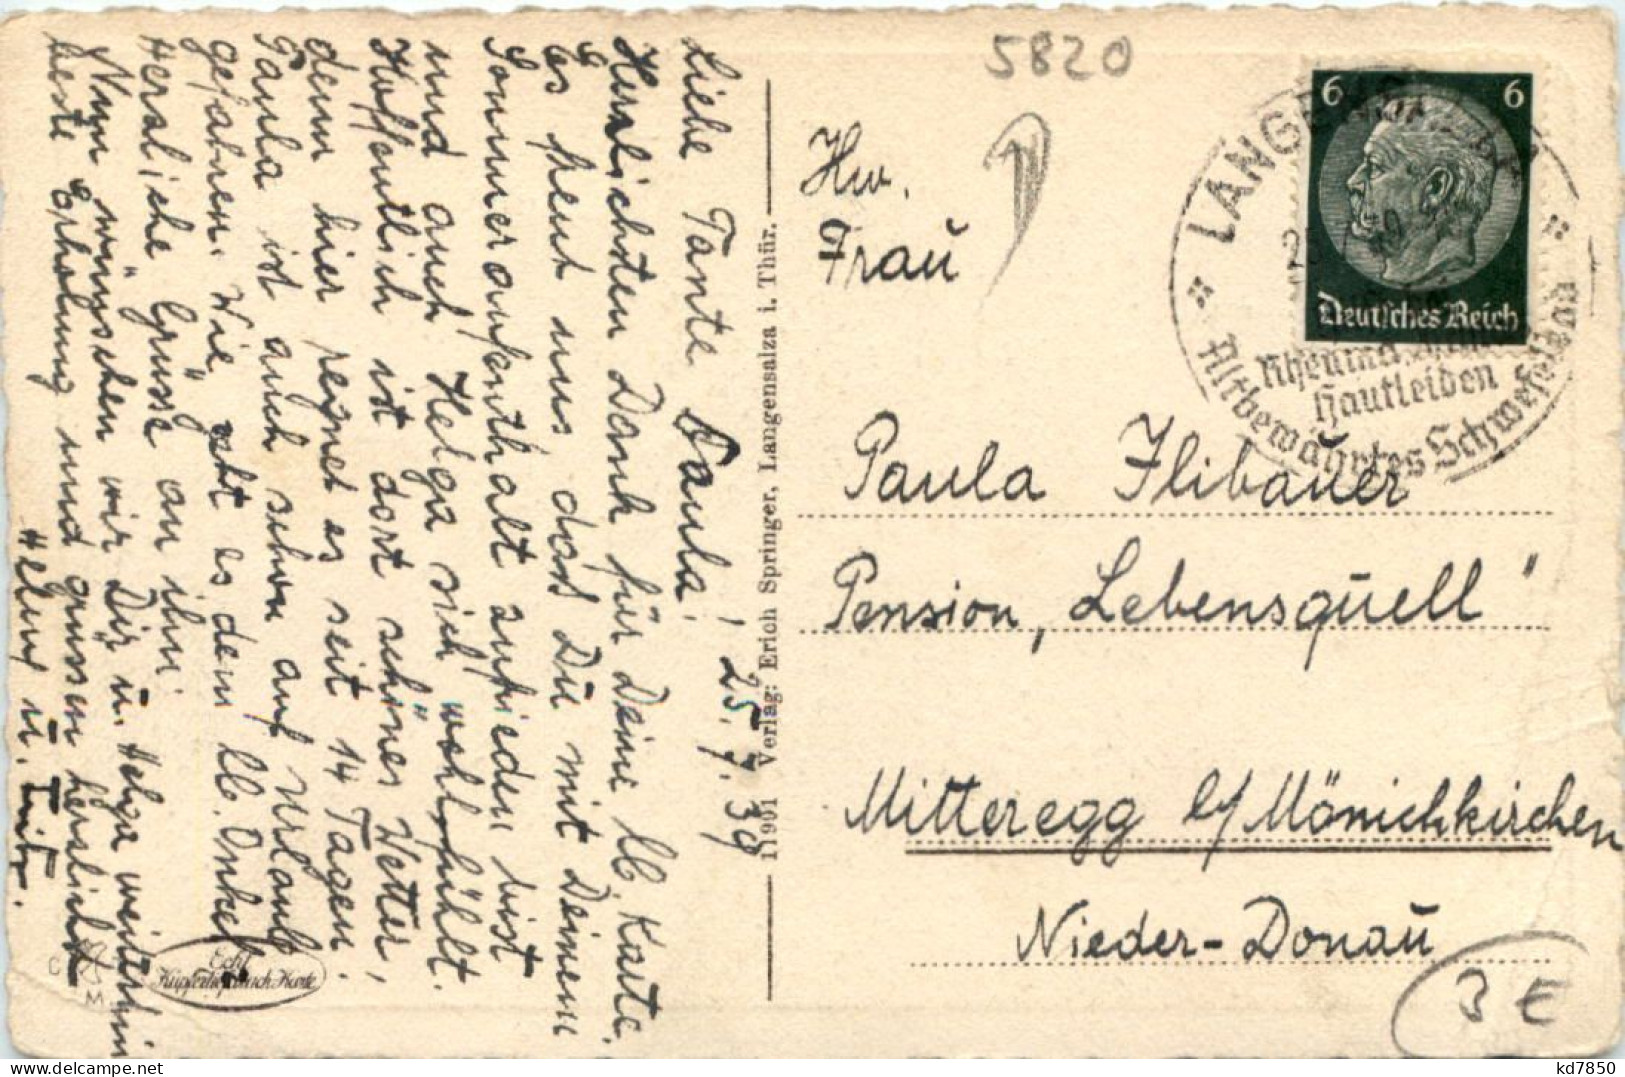 25.7.39
Liebe Tante Paula!
Herzlichsten Dank für Deine lb. Karte.
Es freut uns, dass Du mit Deinem
Sommeraufenthalt zufrieden bist
und auch Helga sich wohl fühlt.
Hoffentlich ist dort schönes Wetter,
denn hier regnet es seit 14 Tagen.
Paula ist auch schon auf Urlaub
gefahren. Wie geht es dem lb. Onkel
Herzliche Grüsse an ihn.
Nun wünschen wir Dir u. Helga weiterhin
beste Erholung und grüssen herzlichst
u.
11901 Verlag: Erich Springer, Langensalza i. Thür.
Echt
Kupfertiefdruck-Karte
5820
6 6
Deutsches Reich
LANGENSALZA
Rheuma
Hautleiden
Altbewährtes Schwefel
Hw.
Frau
Paula Ilibauer
Pension „Lebensquell“
Mitteregg b/Mönichkirchen
Nieder-Donau
3 €
kd7850